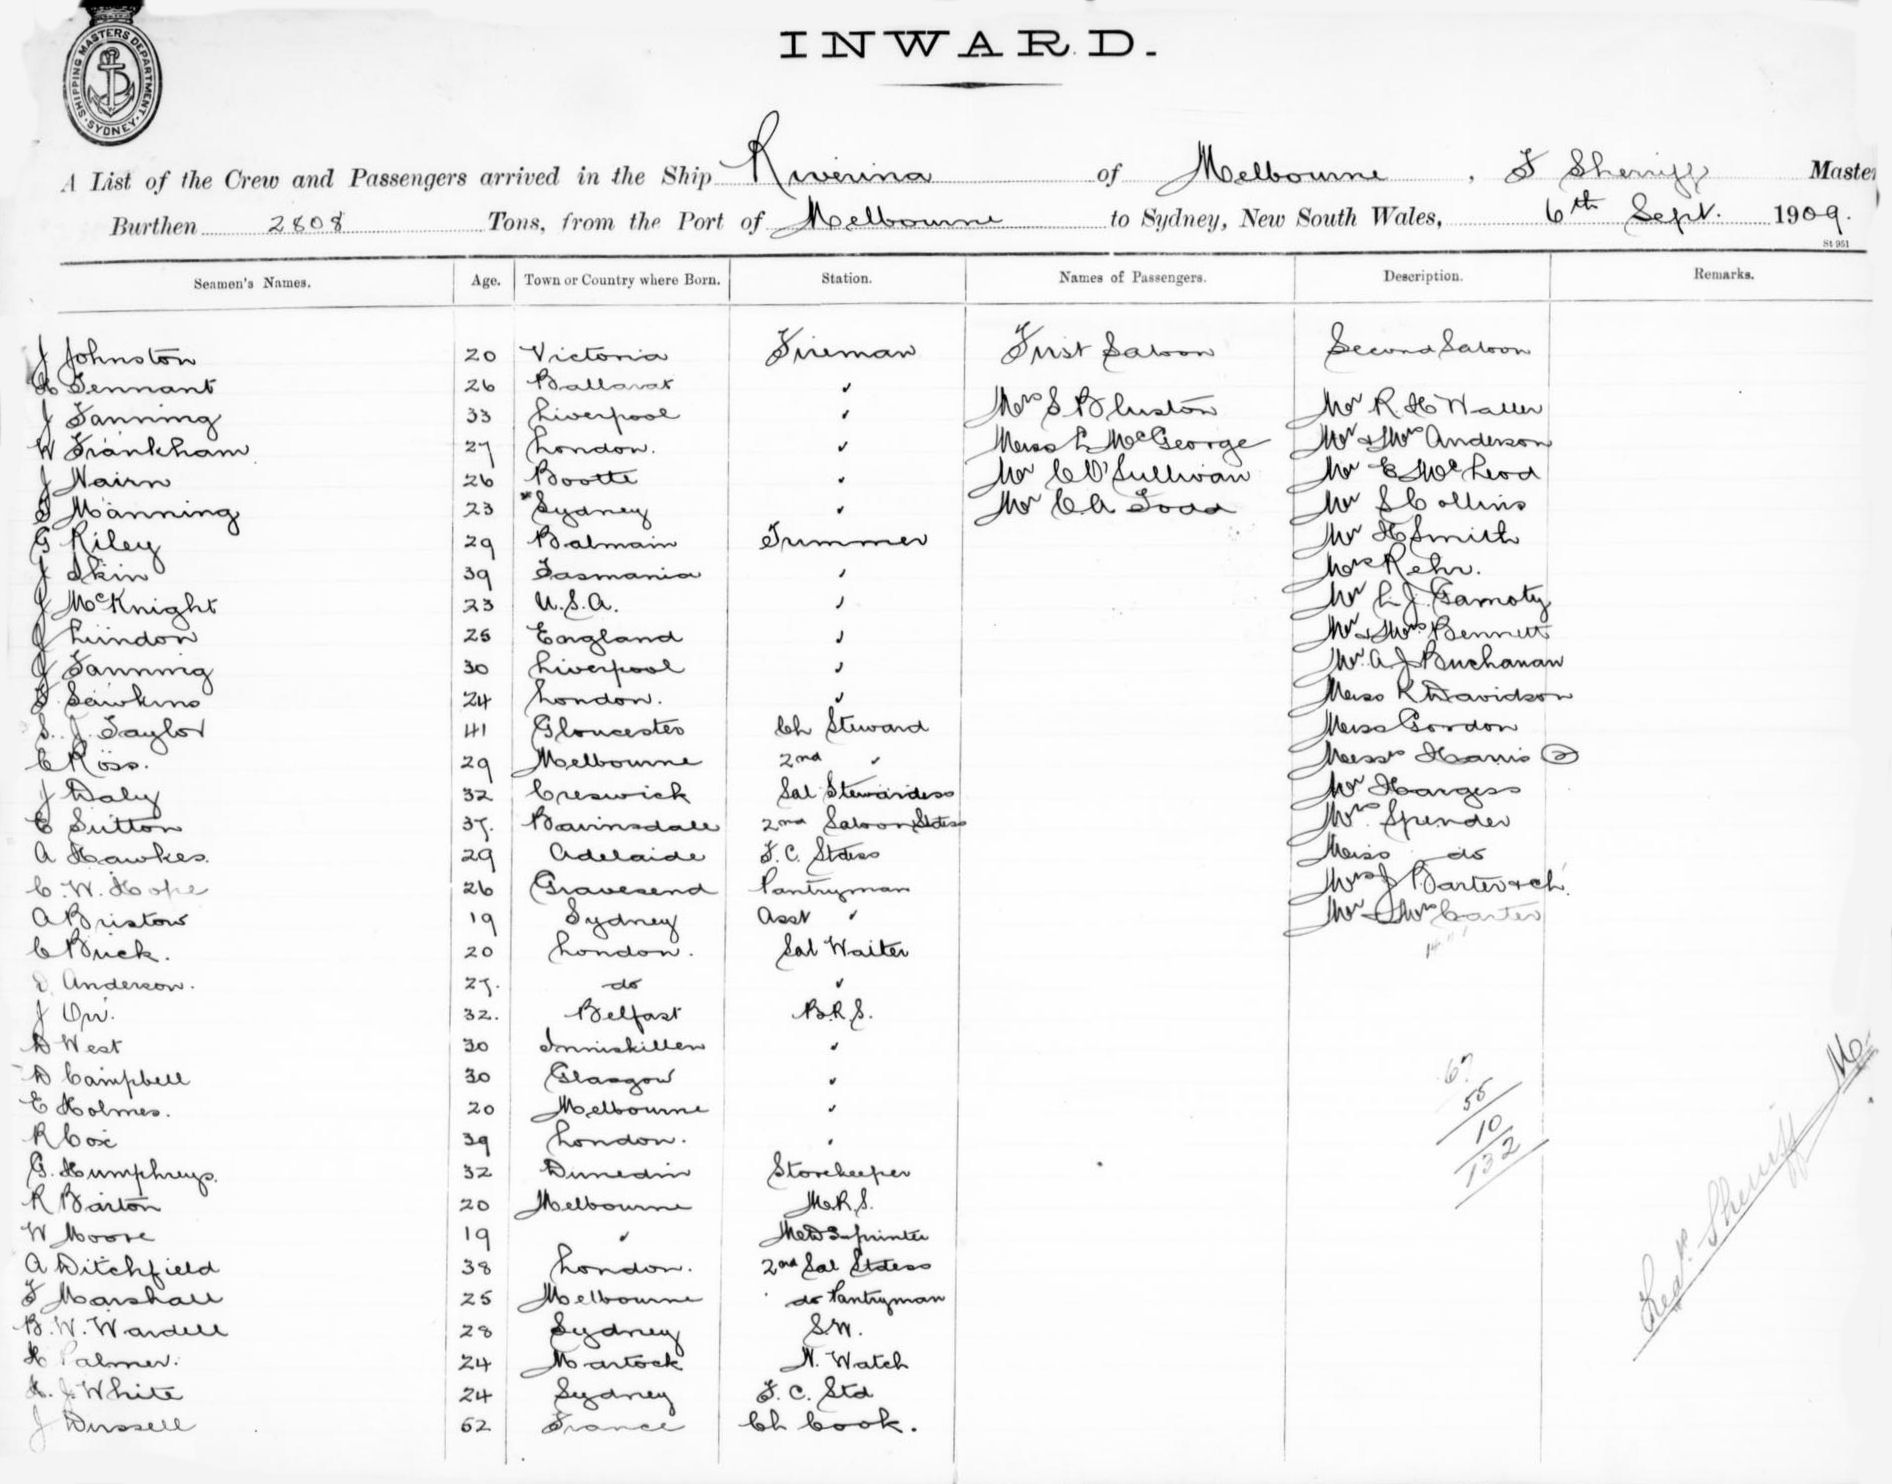 SHIPPING MASTERS DEPARTMENT · SYDNEY ·
INWARD.
A List of the Crew and Passengers arrived in the Ship Riverina of Melbourne, F Sherriff Master
Burthen 2808 Tons, from the Port of Melbourne to Sydney, New South Wales, 6th Sept. 1909.
St 951
Seamen's Names. Age. Town or Country where Born. Station. Names of Passengers. Description. Remarks.
J Johnston 20 Victoria Fireman First Saloon Second Saloon
H Tennant 26 Ballarat "
J Fanning 33 Liverpool " Mrs S Bluston Mr R H Waller
W Frankham 27 London. " Miss L McGeorge Mr & Mrs Anderson
J Nairn 26 Bootle " Mr C O'Sullivan Mr E McLeod
T Manning 23 Sydney " Mr C A Todd Mr S Collins
G Riley 29 Balmain Trimmer Mr H Smith
J Skin 39 Tasmania " Mrs Rehr.
J McKnight 23 U.S.A. " Mr L J Gamoty
J Lindon 25 England " Mr & Mrs Bennett
J Fanning 30 Liverpool " Mr A J Buchanan
F Sawkins 24 London. " Miss K Davidson
S. J. Taylor 41 Gloucester Ch Steward Miss Gordon
C Ross. 29 Melbourne 2nd " Misses Harris (2)
J Daly 32 Creswick Sal Stewardess Mr Hargess
E Sutton 37. Bairnsdale 2nd Saloon Stdess Mrs Spender
A Hawkes. 29 Adelaide F. C. Stdess Miss do
C. W. Hope 26 Gravesend Pantryman Mrs J Barter & ch.
A Bristow 19 Sydney Asst " Mr & Mrs Carter
C Buck. 20 London. Sal Waiter
Anderson. 27. do "
J Orr. 32. Belfast B.R.S.
D West 30 Inniskillen "
D Campbell 30 Glasgow "
E Holmes. 20 Melbourne "
R Cox 39 London. "
G. Humphreys. 32 Dunedin Storekeeper
R Barton 20 Melbourne M.R.S.
W Moore 19 "
A Ditchfield 38 London. 2nd Sal Stdess
F Marshall 25 Melbourne do Pantryman
B. W. Wardell 28 Sydney S.W.
H Palmer. 24 Martock N. Watch
H. J. White 24 Sydney F. C. Std
J Dussell 52 France Ch Cook.
67
55
10
132
Fredk. Sherriff